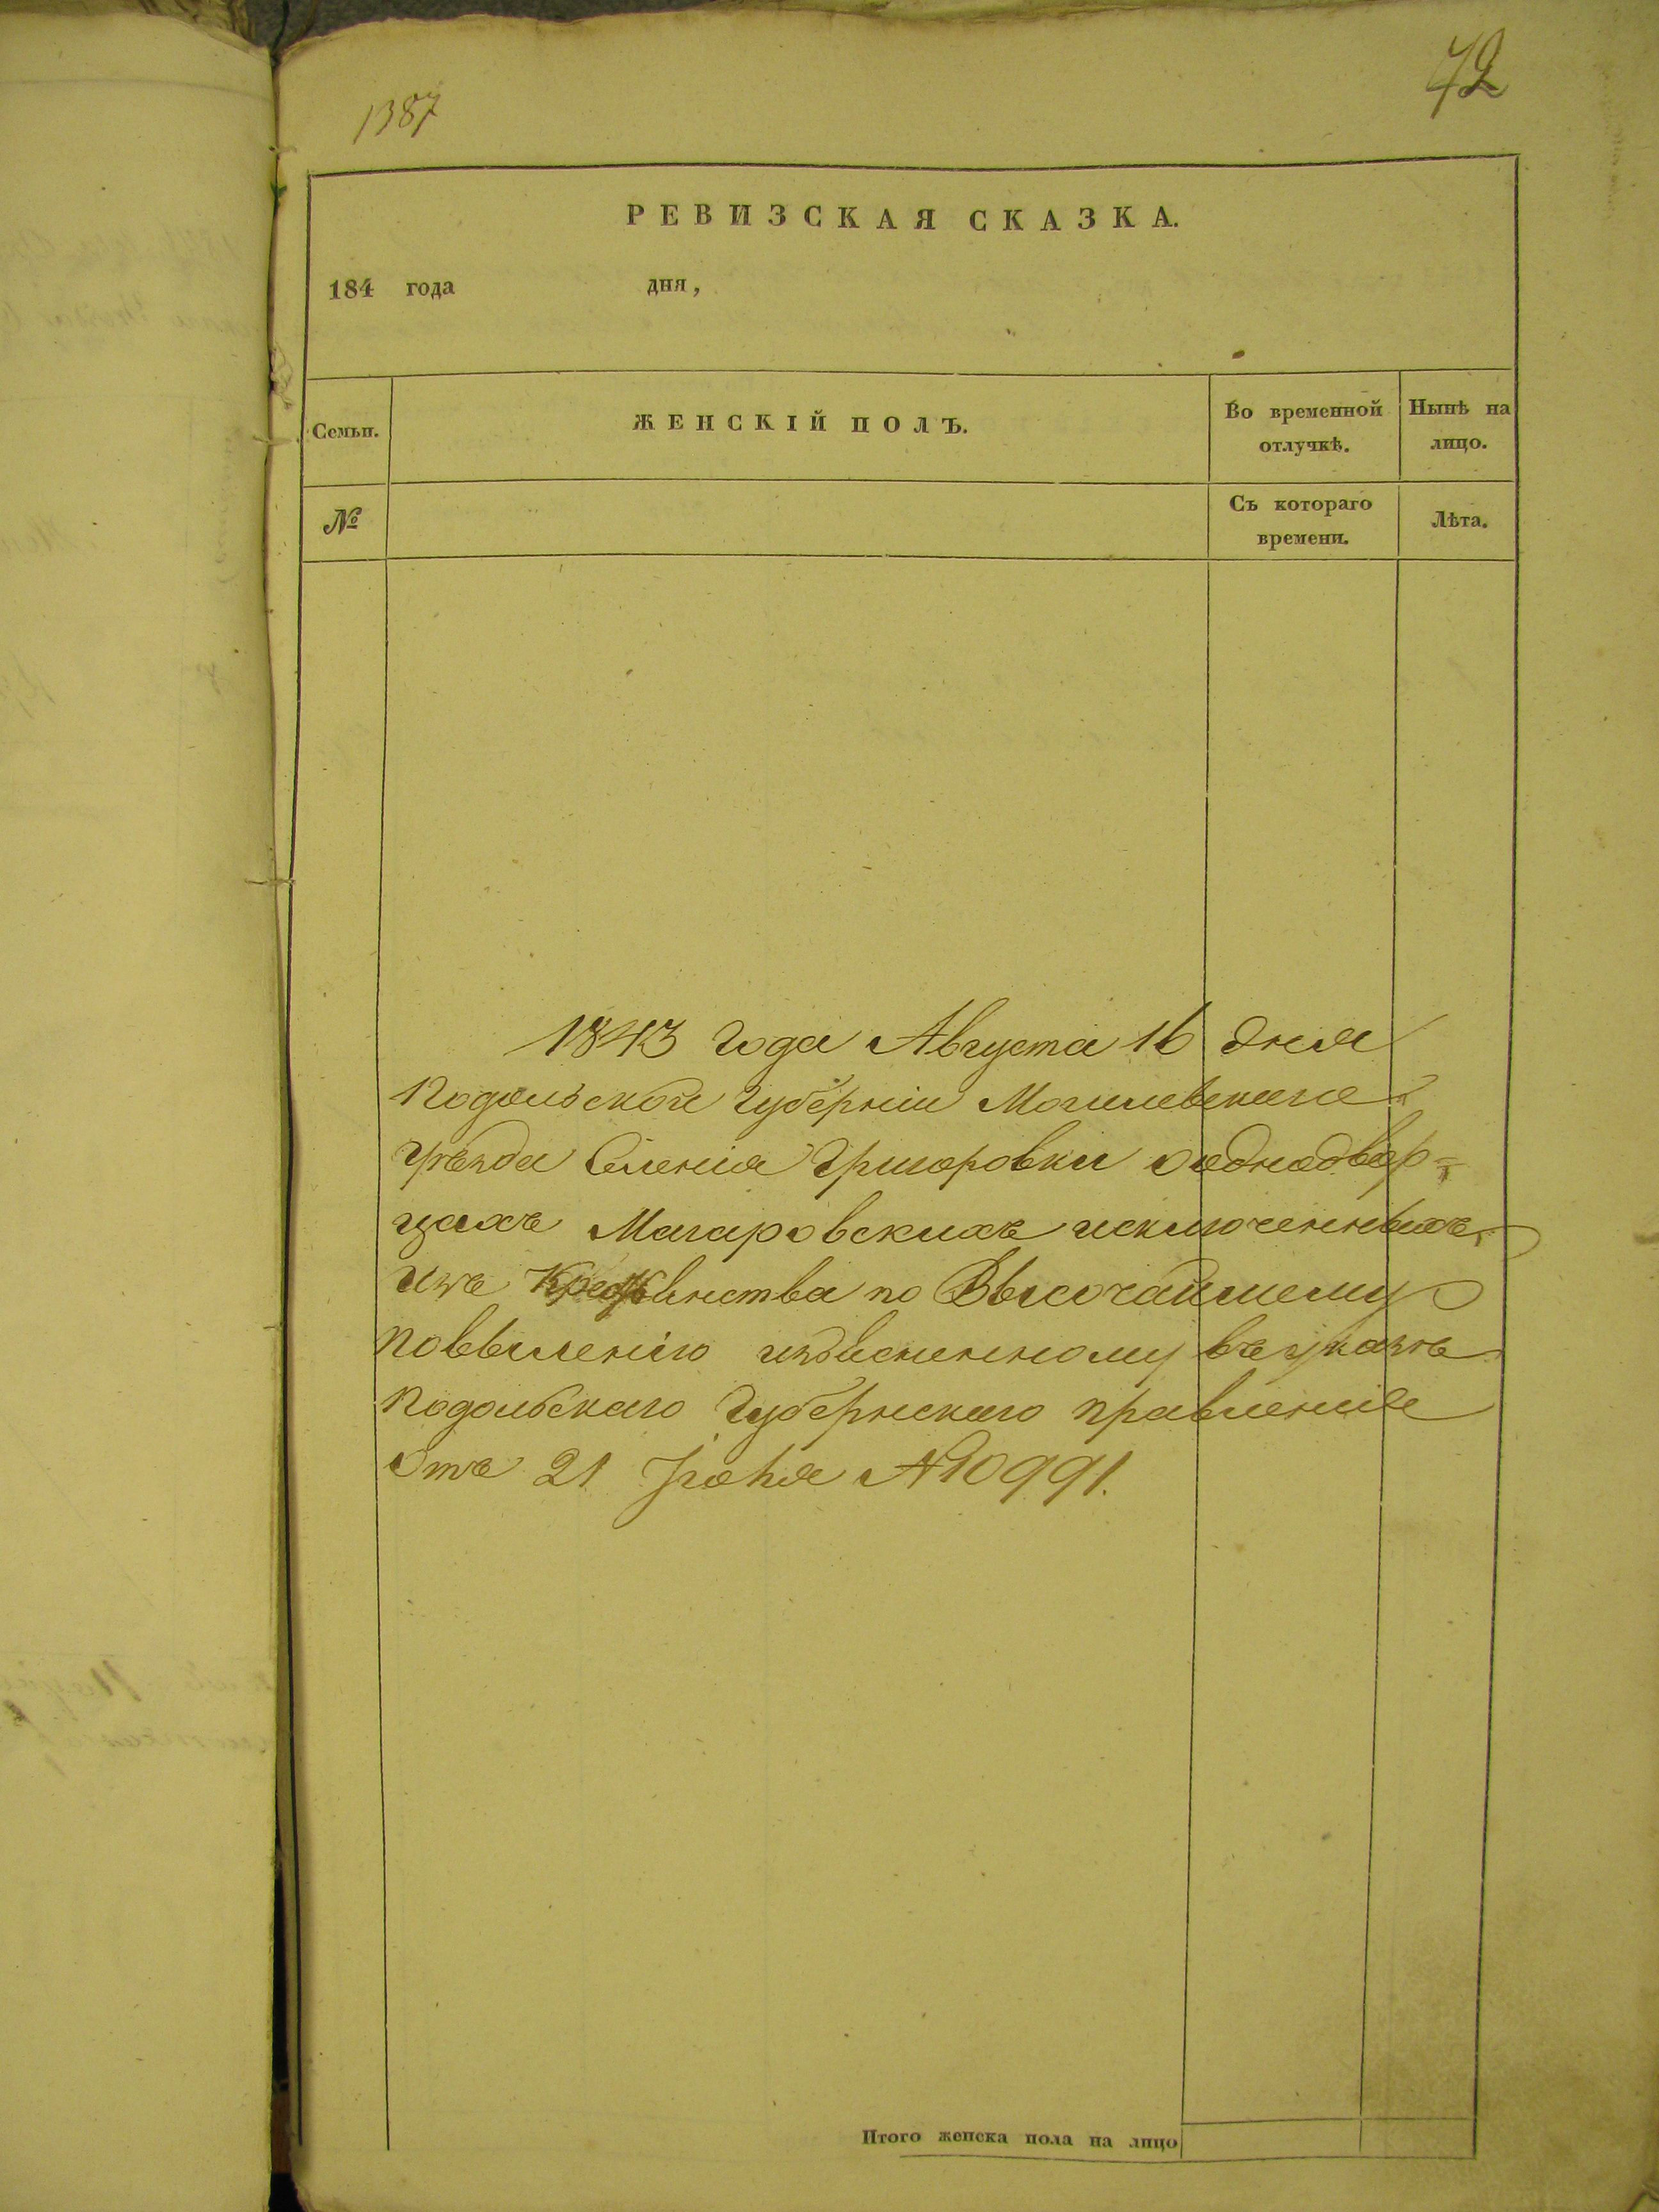 1387
72
РЕВИЗСКАЯ СКАЗКА.
184 года дня,
Семьи. ЖЕНСКІЙ ПОЛЪ. Во временной отлучкѣ. Нынѣ на лицо.
№ Съ котораго времени. Лѣта.
1843 года Августа 16 дня
Подольской Губерніи Могилевскаго
уѣзда Селенія Григоровки о однодвор=
цахъ Магаровскихъ исключенныхъ
изъ Крестьянства по Высочайшему
повѣленію изъясненному въ указѣ
Подольскаго Губернскаго правленія
Отъ 21 Іюня №10991.
Итого женска пола на лицо